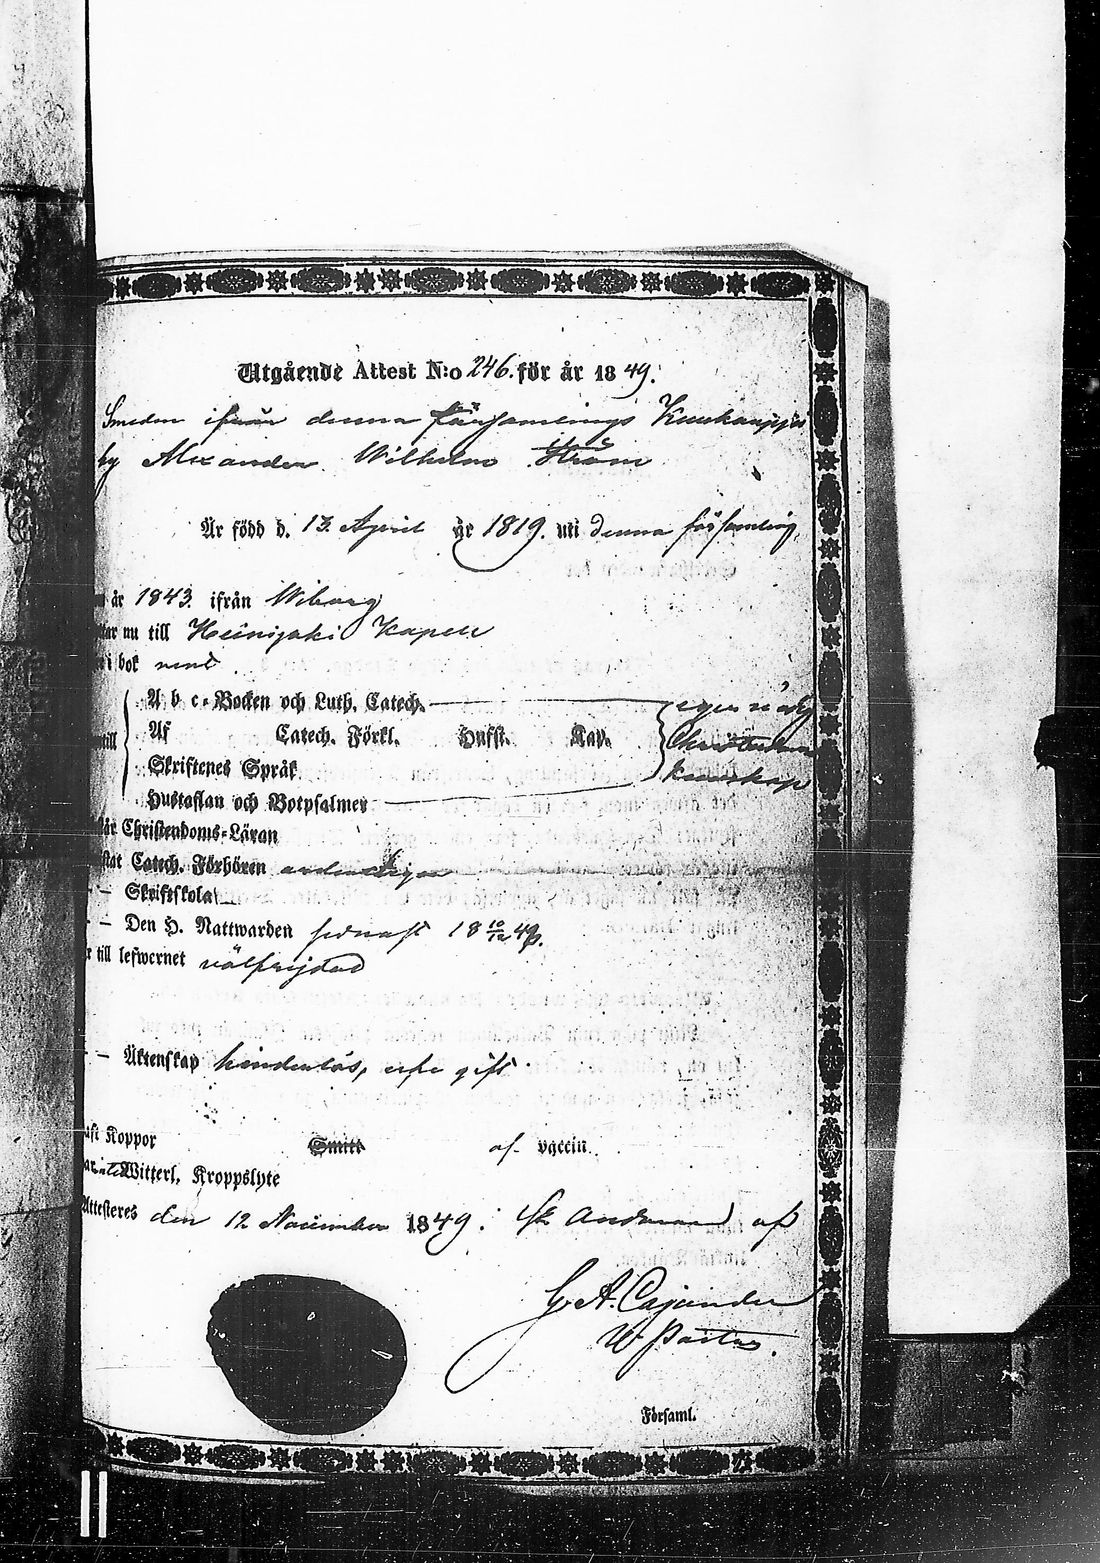 Utgående Attest N:o 246. för år 1849.
Smeden ifrån denna församlings Kuukauppi
by Alexander Wilhelm Ström
Är född d. 13 April år 1819. uti denna församling
år 1843. ifrån Wiborg
nu till Heinijoki Kapell
i bok rent
A b c-Bocken och Luth. Catech.
Af Catech. Förkl. Hust. Kap.
Christendoms
Skriftenes Språk
kunskap
Hustaflan och Botpsalmer
Christendoms-Läran
Catech. Förhören
— Skriftskola
— Den H. Nattwarden senast 18 10/12 49.
till lefwernet välfrejdad
— Äktenskap hinderlös, gift
Koppor Smitt af vaccin.
Witterl. Kroppslyte
Attesteres den 12 November 1849.
G. A. Cajander
W Pastor.
Församl.